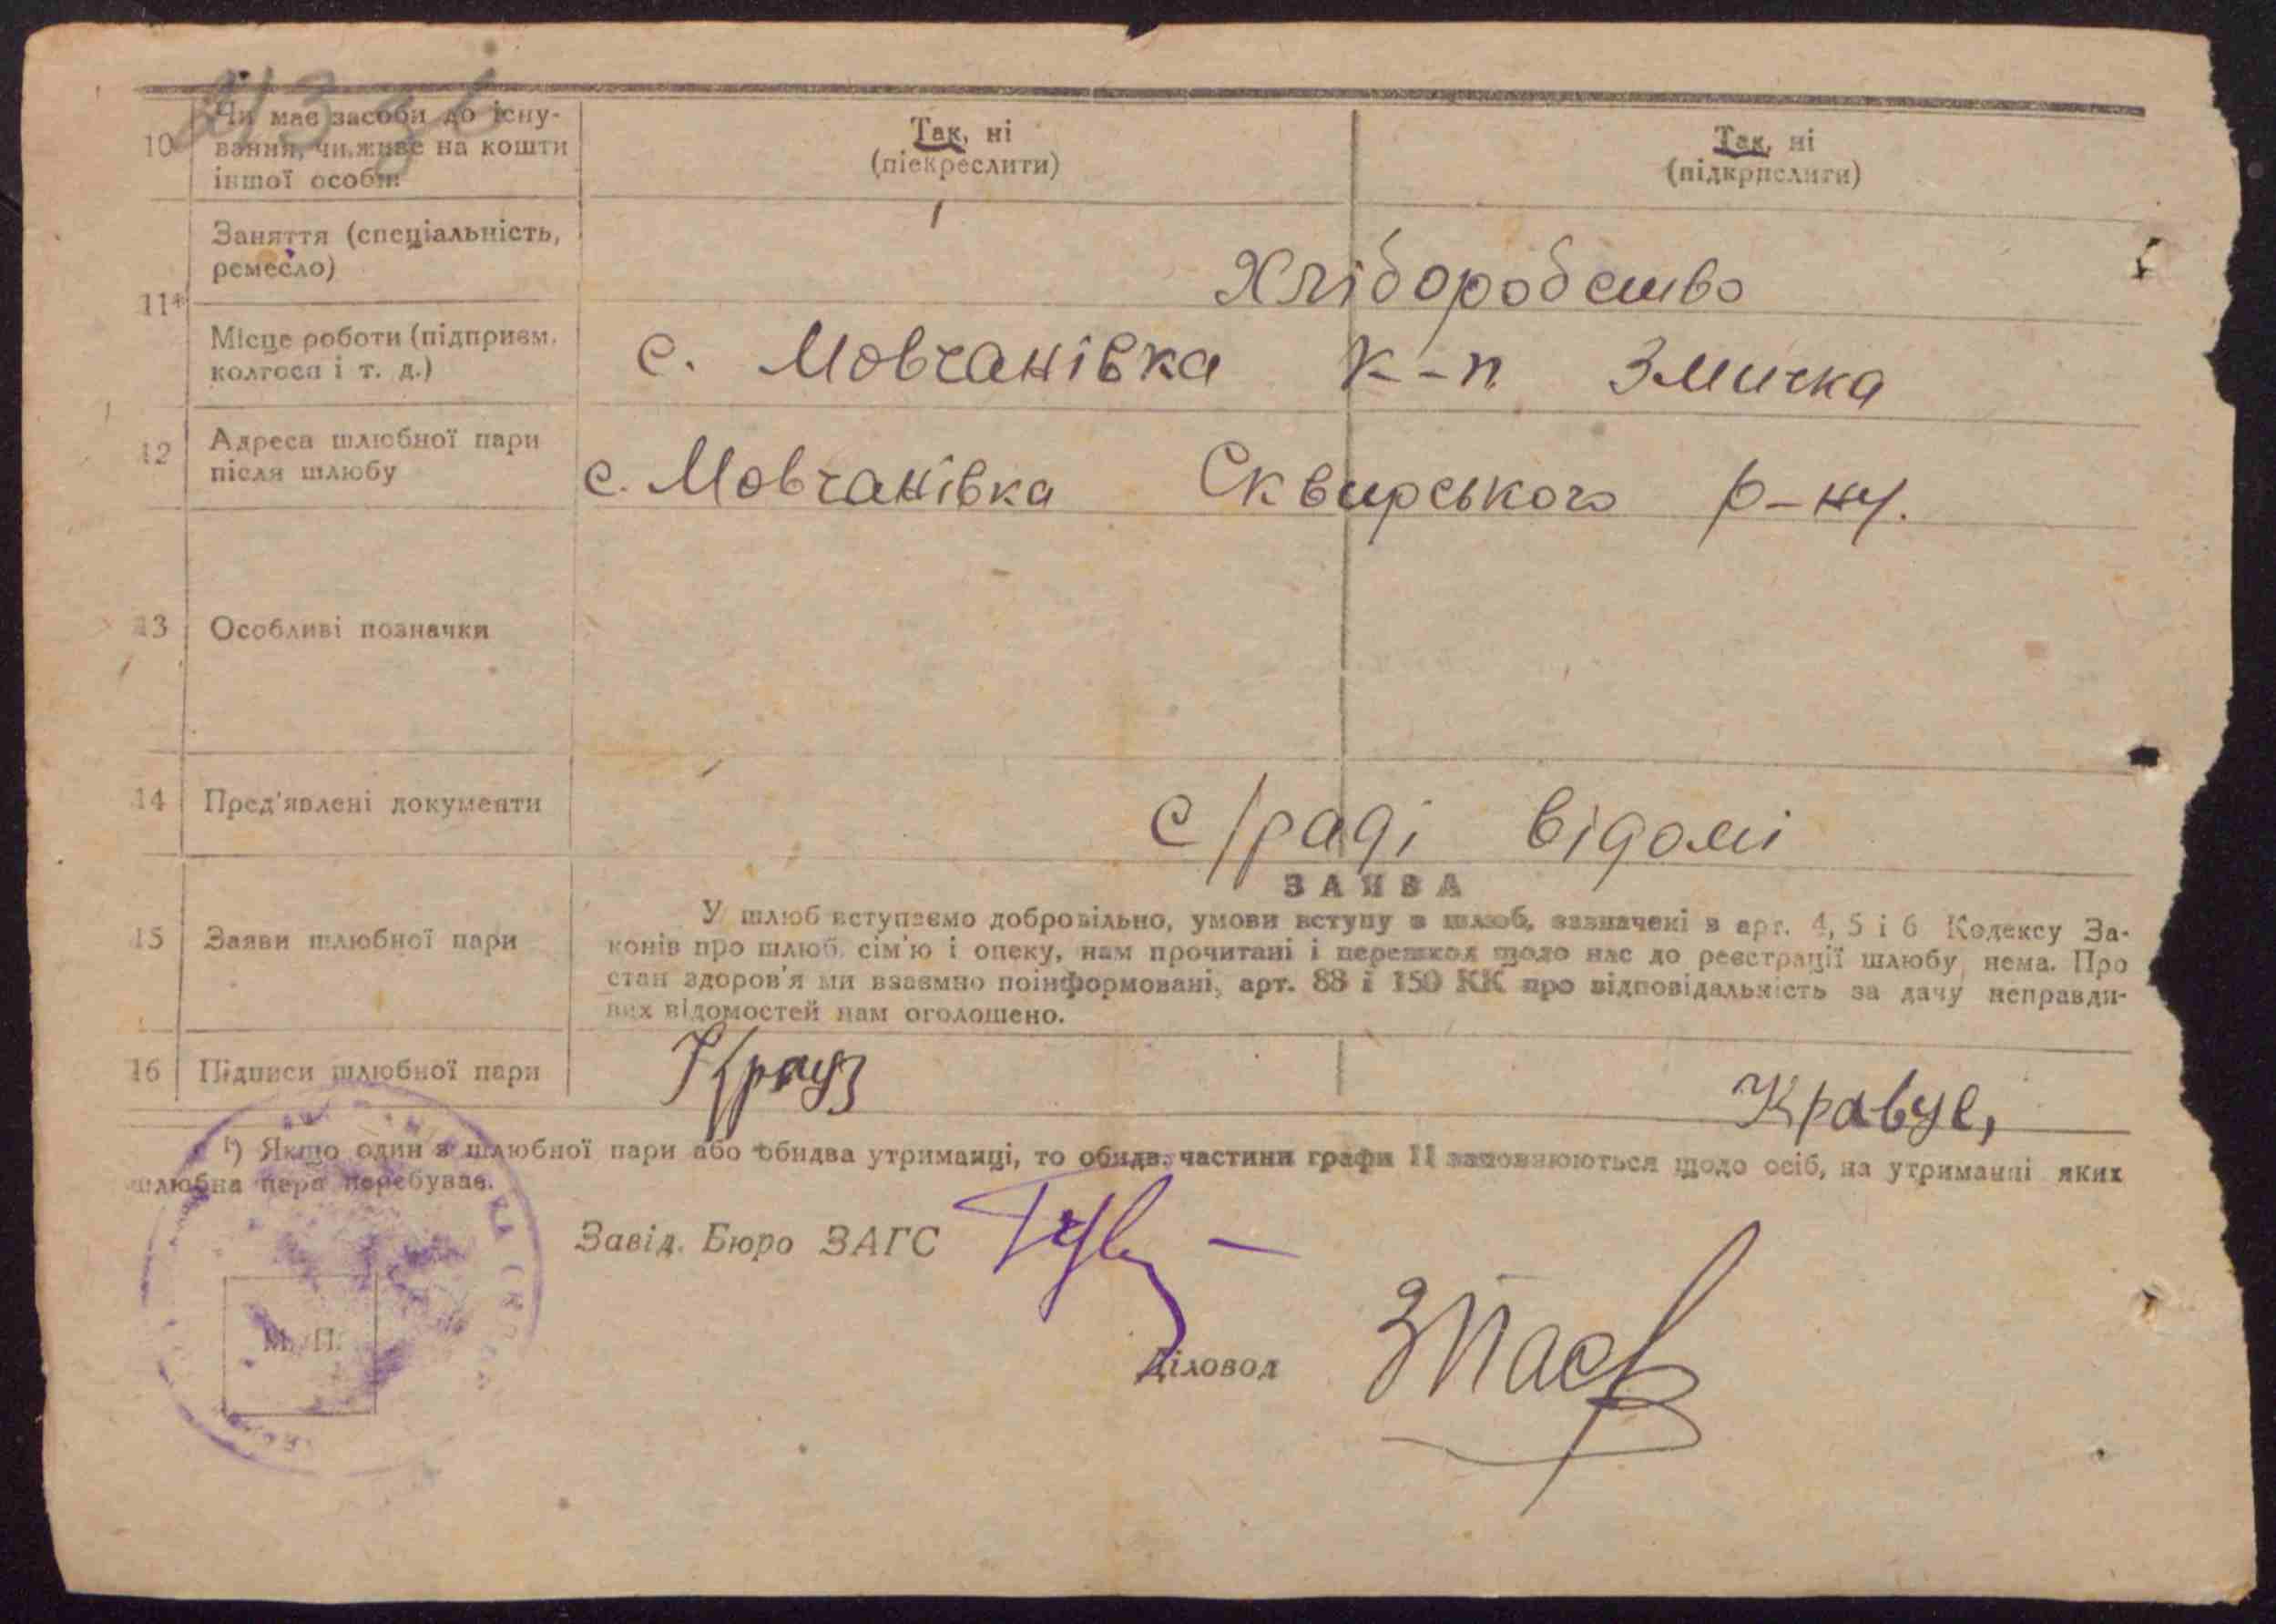 10 Чи має засоби до існу-
вання, чи живе на кошти
іншої особи
Так, ні
(піекреслити)
Так, ні
(підкрпслити)
11*
Заняття (спеціальність,
ремесло)
Хліборобство
Місце роботи (підприєм.
колгосп і т. д.)
с. Мовчанівка к-п Змичка
12 Адреса шлюбної пари
після шлюбу
с. Мовчанівка Сквирського р-ну.
13 Особливі позначки
14 Пред'явлені документи
с/раді відомі
ЗАЯВА
15 Заяви шлюбної пари
У шлюб вступаємо добровільно, умови вступу в шлюб, зазначені в арт. 4, 5 і 6 Кодексу За-
конів про шлюб, сім'ю і опеку, нам прочитані і перешкод щодо нас до реєстрації шлюбу нема. Про
стан здоров'я ми взаємно поінформовані, арт. 88 і 150 КК про відповідальність за дачу неправди-
вих відомостей нам оголошено.
16 Підписи шлюбної пари
Крауз
¹) Якщо один з шлюбної пари або обидва утриманці, то обидв. частини графи 11 заповнюються щодо осіб, на утриманні яких
шлюбна пара перебуває.
Завід. Бюро ЗАГС
М. П.
Діловод